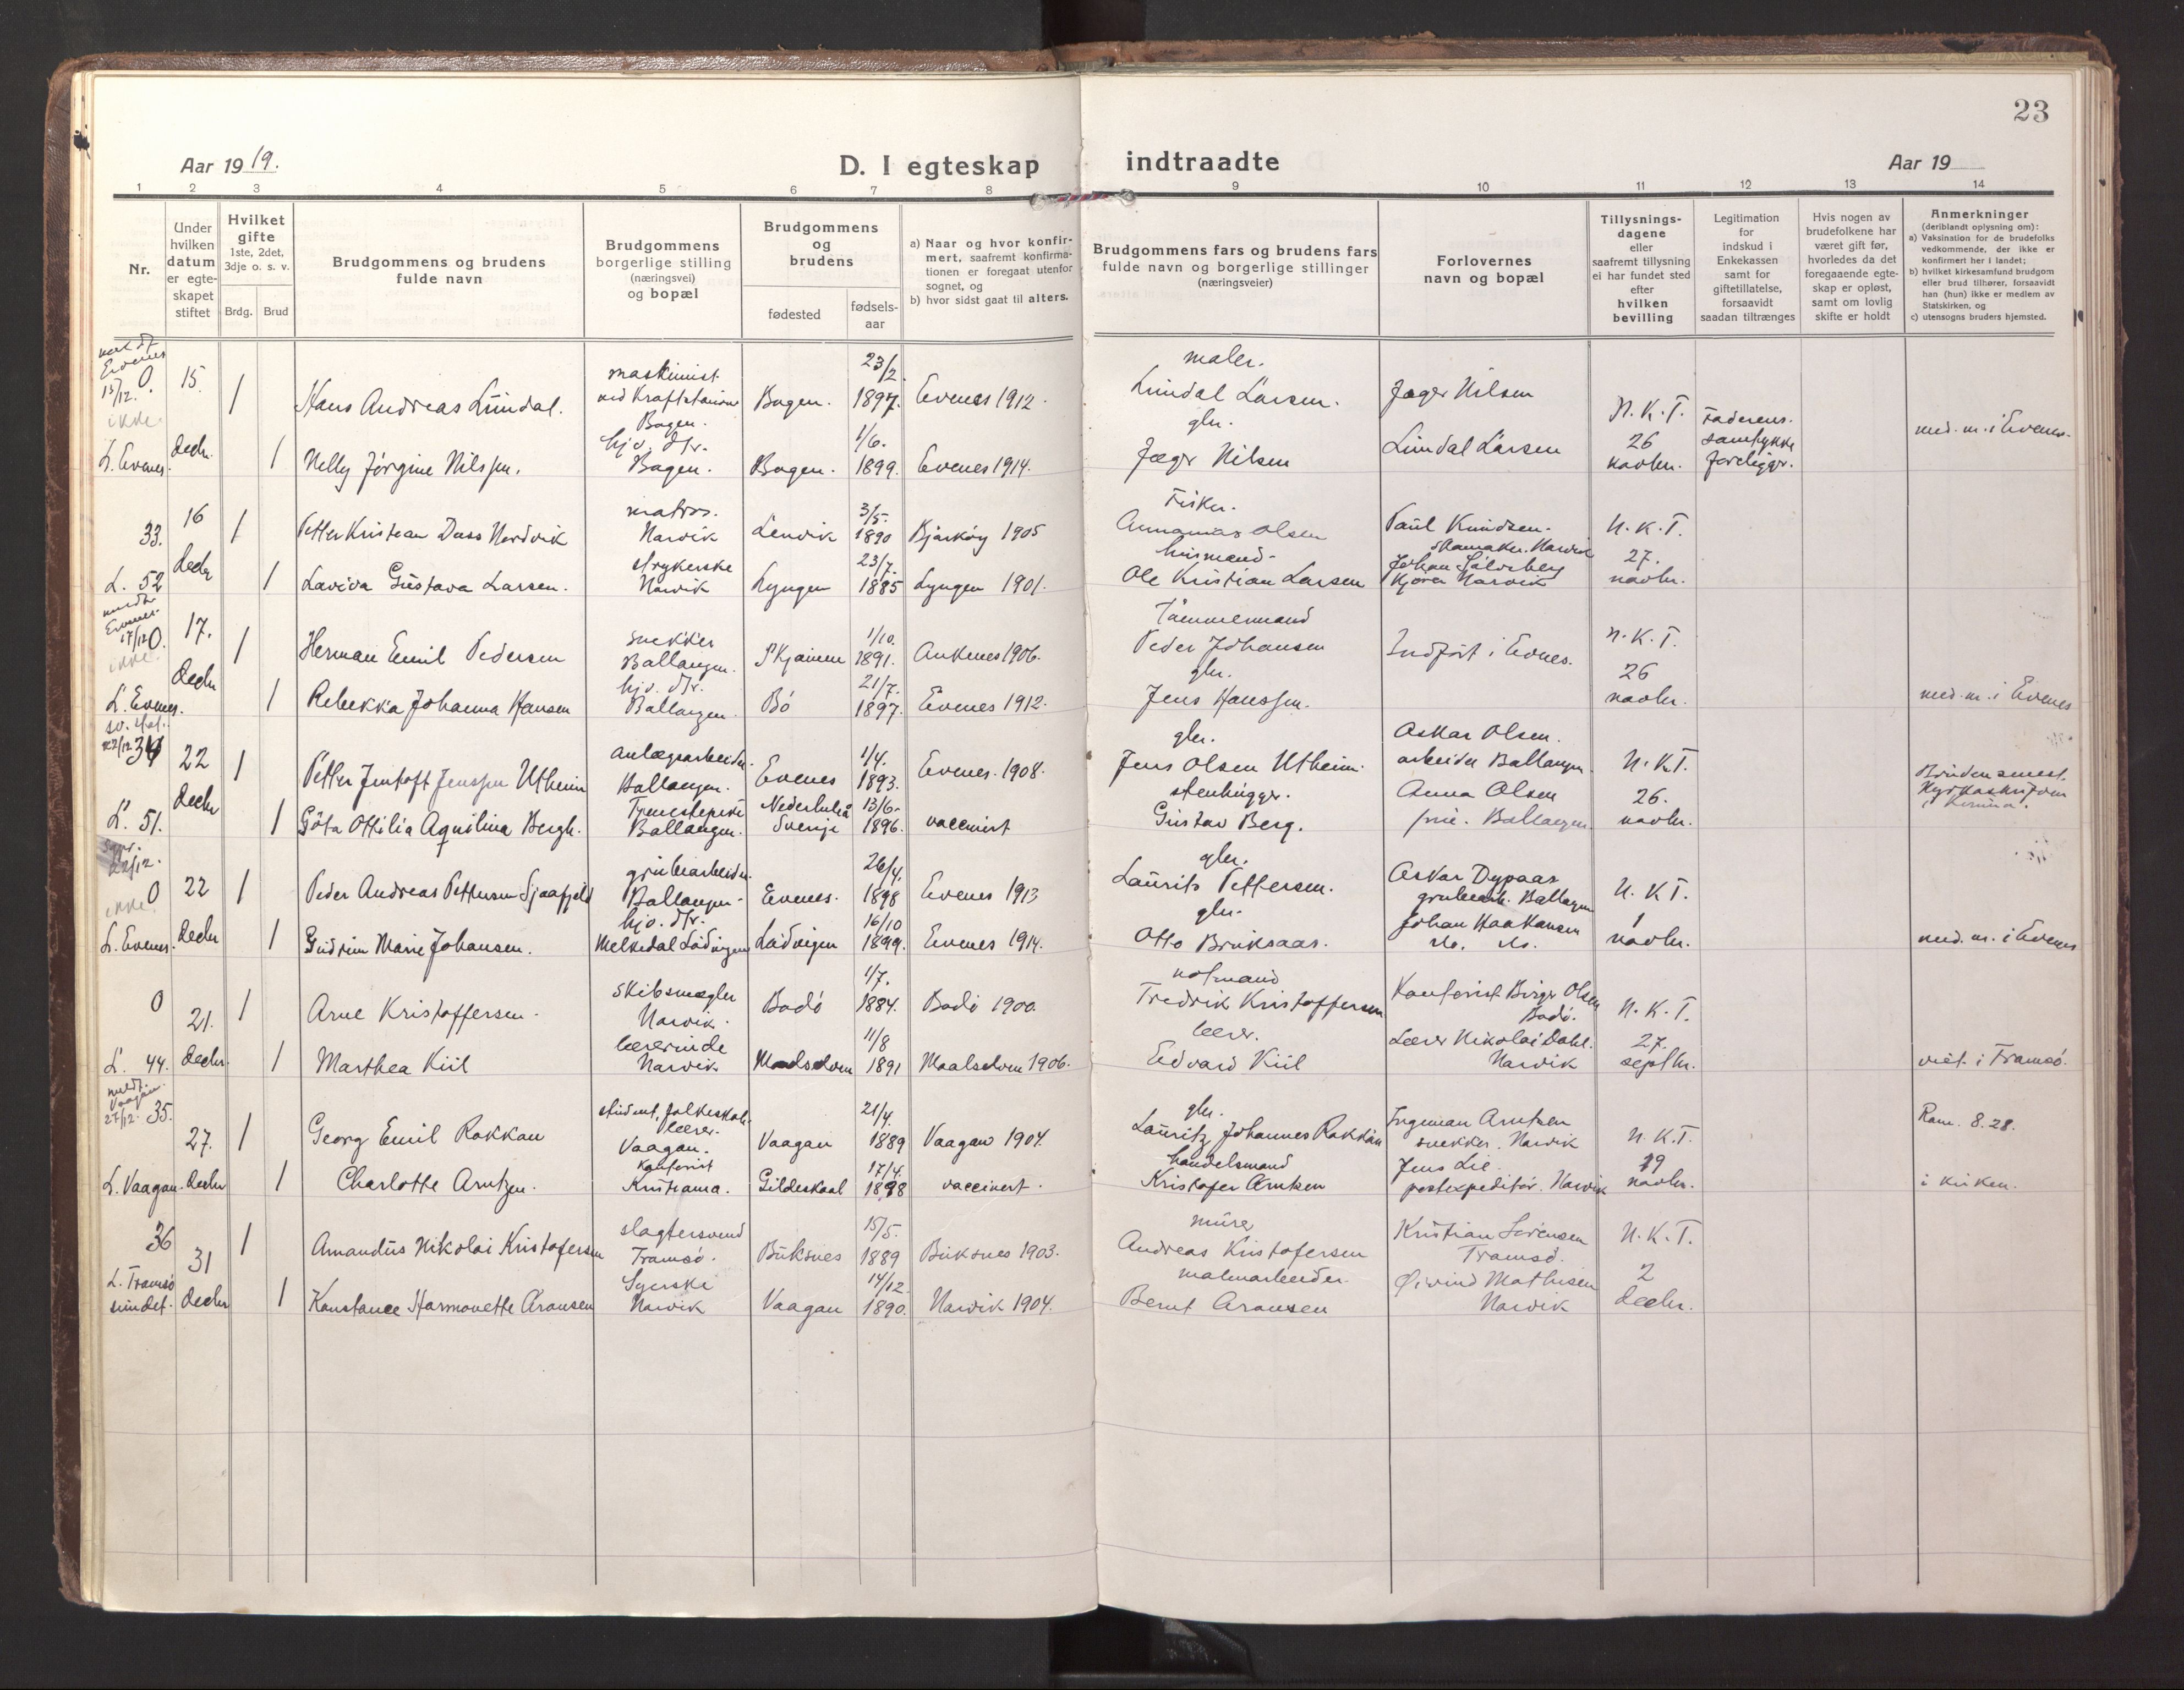 23
Aar 19 19.
D. I egteskap
indtraadte
Aar 19
1 2 3 4 5 6 7 8 9 10 11 12 13 14
Nr.
Under hvilken datum er egteskapet stiftet
Hvilket gifte
1ste, 2det, 3dje o. s. v.
Brdg. Brud
Brudgommens og brudens fulde navn
Brudgommens borgerlige stilling (næringsvei) og bopæl
Brudgommens og brudens
fødested
fødsels-aar
a) Naar og hvor konfirmert, saafremt konfirmationen er foregaat utenfor sognet, og
b) hvor sidst gaat til alters.
Brudgommens fars og brudens fars fulde navn og borgerlige stillinger (næringsveier)
Forlovernes navn og bopæl
Tillysningsdagene eller saafremt tillysning ei har fundet sted efter hvilken bevilling
Legitimation for indskud i Enkekassen samt for giftetillatelse, forsaavidt saadan tiltrænges
Hvis nogen av brudefolkene har været gift før, hvorledes da det foregaaende egteskap er opløst, samt om lovlig skifte er holdt
Anmerkninger (deriblandt oplysning om):
a) Vaksination for de brudefolks vedkommende, der ikke er konfirmert her i landet;
b) hvilket kirkesamfund brudgom eller brud tilhører, forsaavidt han (hun) ikke er medlem av Statskirken, og
c) utensogns bruders hjemsted.
Evenes 15/12. 0. ikke
15. 1 Hans Andreas Lündal. maskinist ved Kraftstation Bogen. Bogen. 23/2. 1897. Evenes 1912. maler. Lündal Larsen. Jæger Nilsen N.K.T.
L. Evenes. decbr. 1 Nelly Jörgine Nilssen. hjv. dtr. Bogen. Bogen. 1/6. 1899. Evenes 1914. gbr. Jæger Nilsen Lündal Larsen 26 novbr. Faderens samtykke foreligger. med. m. i Evenes.
33. 16 1 Petter Kristean Dass Nordvik matros. Narvik Lenvik 3/5. 1890 Bjarköy 1905 Fisker. Annanias Olsen Paul Knudsen. skomaker. Narvik N.K.T.
L. 52 decbr 1 Lavida Güstava Larsen. strykerske Narvik Lyngen 23/7. 1885 Lyngen 1901. husmand. Ole Kristian Larsen Johan Sölvberg kjörer Narvik 27. novbr.
meldt Evenes. 17/12 0. ikke.
17. 1 Herman Emil Pedersen snekker Ballangen. Skjomen 1/10. 1891. Ankenes 1906. Tömmermand Peder Johansen Indfört i Evenes. N.K.T.
L. Evenes. decbr 1 Rebekka Johanna Hansen hjv. dtr. Ballangen. Bö 21/7. 1897. Evenes 1912. gbr. Jens Hanssen. 26 novbr. med. m. i Evenes
22/12 34 22 1 Petter Jentoft Jenssen Utheim anlægsarbeider. Ballangen. Evenes 1/4. 1893. Evenes. 1908. gbr. Jens Olsen Utheim. Askar Olsen. arbeider Ballangen. N.K.T.
L. 51. decbr 1 Göta Ottilia Aquilina Bergh. Tjenestepike Ballangen. Nederluleå Sverige 13/6. 1896. vaccinert stenhugger. Gustav Berg. Anna Olsen frue. Ballangen. 26. novbr.
22/12. 0 ikke. 22 1 Peder Andreas Pettersen Sjaafjeld grubearbeider. Ballangen. Evenes. 26/4. 1898 Evenes 1913 gbr. Laurits Pettersen. Askar Dypaas grubearb. Ballangen N.K.T.
L. Evenes. decbr 1 Gudrun Marie Johansen. hjv. dtr. Melkedal Lödingen Lödingen 16/10 1899. Evenes 1914. gbr. Otto Bruksaas. Johan Haakansen do. do. 1 novbr. med. m. i Evenes
0 21. 1 Arne Kristoffersen. skibsmægler Narvik. Bodö 1/7. 1884. Bodö 1900. notmand Fredrik Kristoffersen Kontorist Birger Olsen Bodö. N.K.T.
L. 44. decbr. 1 Marthea Kiil lærerinde Narvik Maalselven 11/8 1891 Maalselven 1906. lærer. Edvard Kiil Lærer Nikolai Dahl. Narvik 27. septbr. viet i Tromsö.
meldt Vaagan. 27/12. 35. 27. 1 Georg Emil Rokkan student, folkeskolelærer. Vaagan. Vaagan 21/4. 1889 Vaagan 1904. gbr. Lauritz Johannes Rokkan Ingeman Arntzen snekker. Narvik N.K.T. Rom. 8.28.
L. Vaagan. decbr 1 Charlotte Arntzen. Kontorist Kristiania. Gildeskaal 17/4. 1898 vaccinert. handelsmand Kristofer Arntzen Jens Lie. postexpeditör. Narvik 19 novbr. i kirken.
36 31 1 Amandus Nikolai Kristofersen slagtersvend Tromsö. Buksnes 15/5. 1889 Buksnes 1903. murer Andreas Kristofersen Kristian Sörensen Tromsö. N.K.T.
L. Tromsösundet. decbr 1 Konstance Harmonette Aronsen Syerske Narvik Vaagan 14/12. 1890. Narvik 1904. malmarbeider. Bernt Aronsen Øivind Mathisen Narvik 2 decbr.